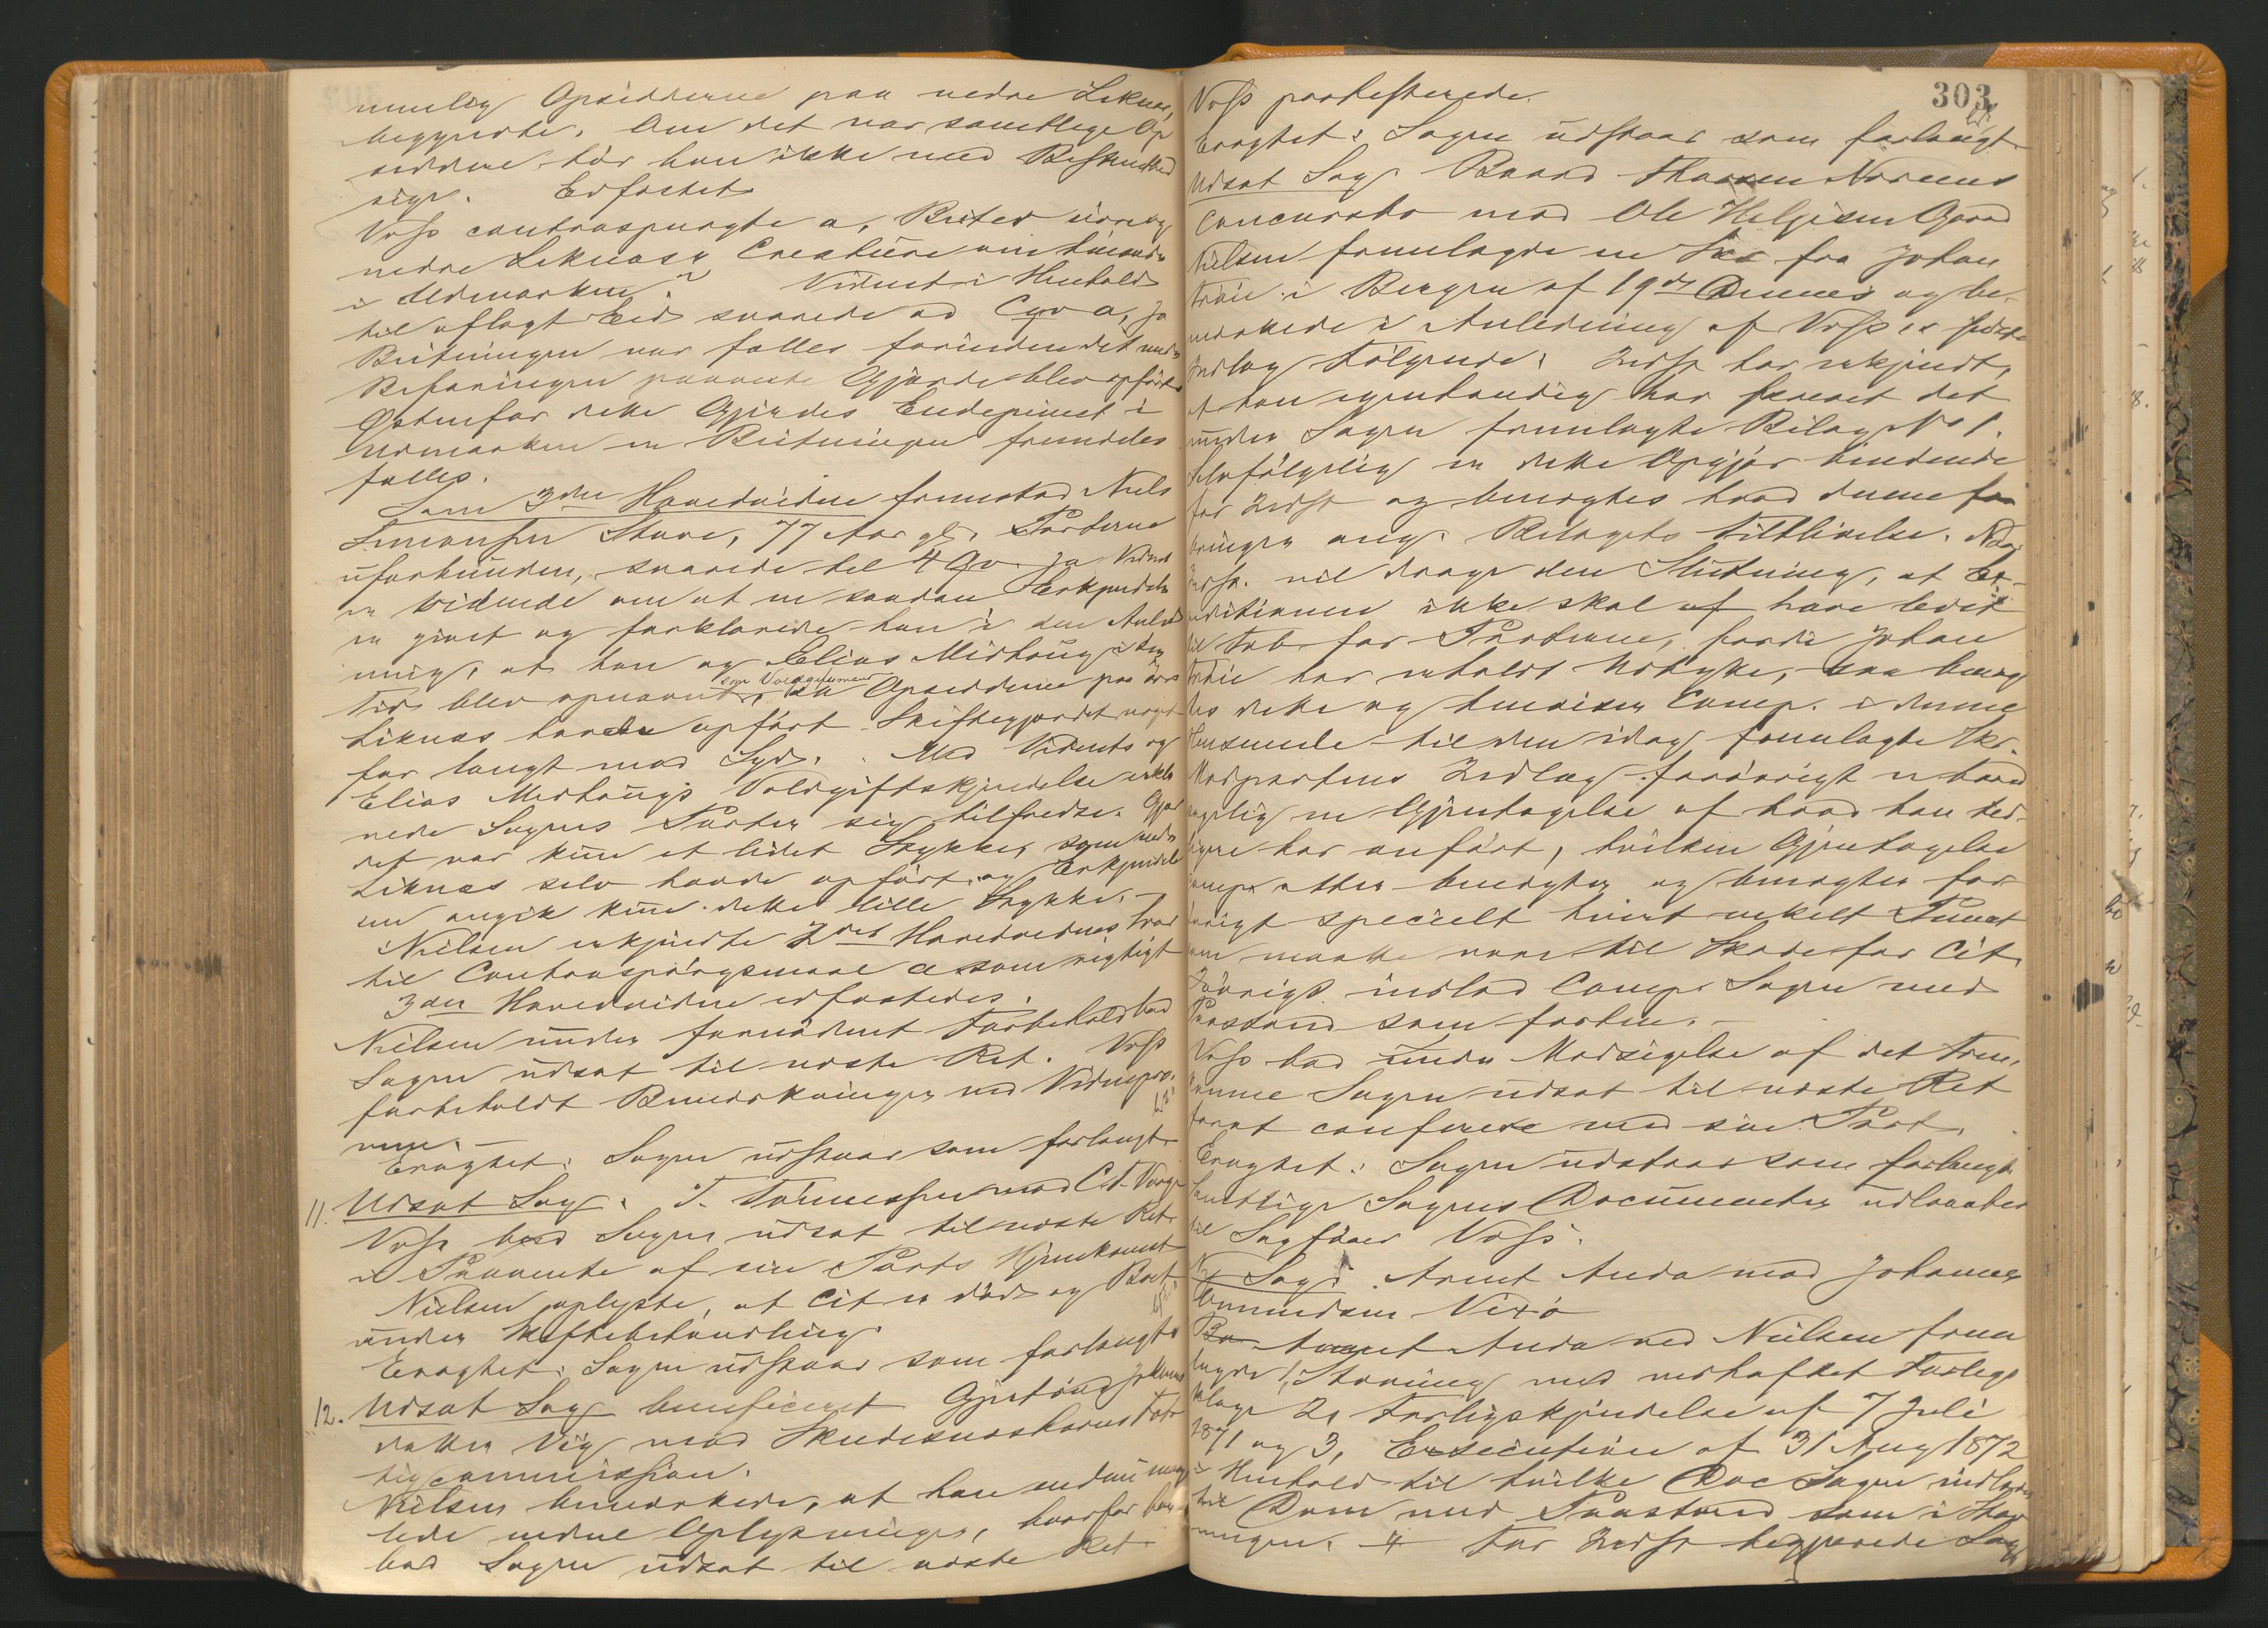 nemlig Opsidderne paa nedre Liknes,
begyndte. Om det var samtlige Op
siddere, tör han ikke med Bestemthed
sige. Edfæstet
Voss contraspurgte a, Beited övre og
nedre Liknæs Creature om hinanden
i Udmarken? Vidnet i Henhold
til aflagt Eed svarede ad Cqv a, ja
Beitningen var fælles forinden det under
Befaringen paaviste Gjærde blev opført
Östenfor dette Gjærdes Endepunct i
Udmarken er Beitningen fremdeles
fælles.
Som 3die Hovedvidne fremstod Niels
Simonsen Stava, 77 Aar gl. Parterne
uforbunden, svarede til 4 Qv. ja Vidnet
er vidende om at en saadan Kjendelse
er givet og forklarede han i den Anled
ning, at han og Elias Midhaug i sin
Tid blev opnævnt som Voldgiftsmænd, da Opsidderne paa övre
Liknæs havde opført Skiftegjærdet noget
for langt mod Syd. Med Vidnets og
Elias Midhaugs Voldgiftskjendelse erklæ
rede Sagens Parter sig tilfredse. Gjær
det var kun et lidet Stykke, som nedre
Liknæs selv havde opført og Kjendels
en angik kun dette lille Stykke. -
Nielsen erkjendte 2det Hovedvidnes Svar
til Contraspörgsmaal a som rigtigt
3die Hovedvidne edfæstedes.
Nielsen under fornödent Forbehold bad
Sagen udsat til næste Ret. Voss
forbeholdt Bemærkninger ved Vidnepro.
vene. -
Eragtet: Sagen udstaar som forlangt
11. Udsat Sag. T. Tönnessen mod C. A. Vaage
Voss bad Sagen udsat til næste Ret
i Paavente af sin Parts Hjemkomst
Nielsen oplyste, at Cit er död og Boet
under Skiftebehandling.
Eragtet: Sagen udstaar som forlangt
12. Udsat Sag beneficeret Gjertrud Johannes
datter Vig mod Skudesnæshavns Fat
tigcommission.
Nielsen bemærkede, at han endnu mang
lede nedre Oplysninger, hvorfor han
bad Sagen udsat til næste Ret
303
Voss protesterede.
Eragtet: Sagen udstaar som forlangt
Udsat Sag Baard Thorsen Norems
Concursbo mod Ole Helgesen Gaard
Nielsen fremlagde en Skr fra Johan
Trae i Bergen af 19de Dennes og be-
mærkede i Anledning af Voss's sidste
Indlæg Følgende: Indst har erkjendt,
at han egenhændig har skrevet det
under Sagen fremlagte Bilag No 1.
Selvfølgelig er dette Opgjør bindende
for Indst og benegtes hvad denne fre
bringer ang. Bilagets Tilblivelse. Naar
Indst. vil drage den Slutning, at Ex-
peditionen ikke skal af have ledet
til Tab for Parterne, fordi Johan
Trae har erholdt Udbytte, saa beneg
tes dette og henviser Comp. i denne
Henseende til den idag fremlagte Skr.
Modpartens Indlæg forövrigt er hoved
sagelig en Gjentagelse af hvad han tid-
ligere har anført, hvilken Gjentagelse
Comp. atter benegter og benegter for
övrigt specielt hvert enkelt Punct
som maatte være til Skade for Cit.
Iövrigt indlod Comp. Sagen med
Paastand som forhen. -
Voss bad under Modsigelse af det Frem
komne Sagen udsat til næste Ret
for at conferere med sin Part.
Eragtet: Sagen udstaar som forlangt
Samtlige Sagens Documenter udlaantes
til Sagförer Voss.
Ny Sag: Arent Anda mod Johannes
Amundsen Vixö
Arent Anda ved Nielsen frem
lagde 1, Stævning med vedhæftet Forligs
klage 2, Forligskjendelse af 7 Juli
1871 og 3, Execution af 31 Aug 1872
i Henhold til hvilke Doc Sagen indlodes
til Dom med Paastand som i Stæv
ningen. For Indst begjærede Sag